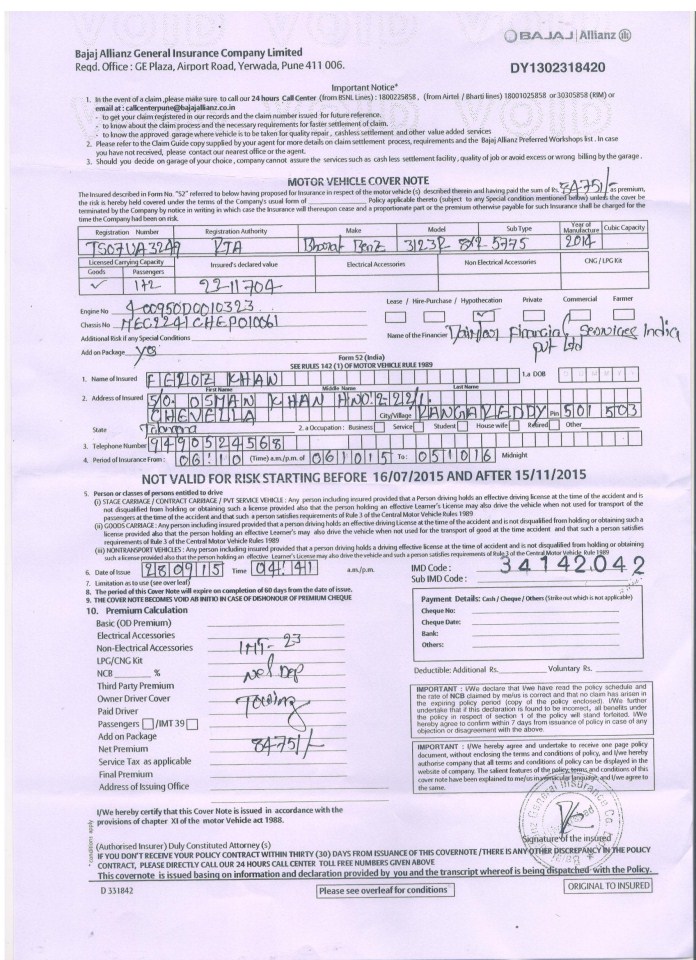 BAJAJ | Allianz
Bajaj Allianz General Insurance Company Limited
Reqd. Office : GE Plaza, Airport Road, Yerwada, Pune 411 006.
DY1302318420
Important Notice*
1. In the event of a claim ,please make sure to call our 24 hours Call Center (from BSNL Lines) : 1800225858, (from Airtel / Bharti lines) 18001025858 or 30305858 (RIM) or
email at : callcenterpune@bajajallianz.co.in
- to get your claim registered in our records and the claim number issued for future reference.
- to know about the claim process and the necessary requirements for faster settlement of claim.
- to know the approved garage where vehicle is to be taken for quality repair , cashless settlement and other value added services
2. Please refer to the Claim Guide copy supplied by your agent for more details on claim settlement process, requirements and the Bajaj Allianz Preferred Workshops list . In case
you have not received, please contact our nearest office or the agent.
3. Should you decide on garage of your choice , company cannot assure the services such as cash less settlement facility , quality of job or avoid excess or wrong billing by the garage .
MOTOR VEHICLE COVER NOTE
The Insured described in Form No. "52" referred to below having proposed for Insurance in respect of the motor vehicle (s) described therein and having paid the sum of Rs. 84751/- as premium,
the risk is hereby held covered under the terms of the Company's usual form of Policy applicable thereto (subject to any Special condition mentioned below) unless the cover be
terminated by the Company by notice in writing in which case the Insurance will thereupon cease and a proportionate part or the premium otherwise payable for such Insurance shall be charged for the
time the Company had been on risk.
Registration Number Registration Authority Make Model Sub Type Year of Manufacture Cubic Capacity
TS07UA3249 RTA Bharat Benz 3123R 8X2 5775 2014
Licensed Carrying Capacity Insured's declared value Electrical Accessories Non Electrical Accessories CNG / LPG Kit
Goods Passengers
1+2 2211704
Lease / Hire-Purchase / Hypothecation Private Commercial Farmer
Engine No 400950D0010323
Chassis No MEC2241CHEP010061
Additional Risk if any Special Conditions
Name of the Financier Daimler Financial Services India
Pvt Ltd
Add on Package Yes
Form 52 (India)
SEE RULIS 142 (1) OF MOTOR VEHICLE RULE 1989
1. Name of Insured FEROZ KHAN 1.a DOB
First Name Middle Name Last Name
2. Address of Insured S/O. OSMAN KHAN HNO: 222/1.
CHEVELLA City/Village RANGAREDDY Pin 501 503
State 2. a Occupation : Business Service Student House wife Retired Other
3. Telephone Number 9490524568
4. Period of Insurance From : 06:10 (Time) a.m./p.m. of 061015 To: 051016 Midnight
NOT VALID FOR RISK STARTING BEFORE 16/07/2015 AND AFTER 15/11/2015
5. Person or classes of persons entitled to drive
(i) STAGE CARRIAGE / CONTRACT CARRIAGE / PVT SERVICE VEHICLE : Any person including insured provided that a Person driving holds an effective driving license at the time of the accident and is
not disqualified from holding or obtaining such a license provided also that the person holding an effective Learner's License may also drive the vehicle when not used for transport of the
passengers at the time of the accident and that such a person satisfies requirements of Rule 3 of the Central Motor Vehicle Rules 1989
(ii) GOODS CARRIAGE : Any person including insured provided that a person driving holds an effective driving License at the time of the accident and is not disqualified from holding or obtaining such a
license provided also that the person holding an effective Learner's may also drive the vehicle when not used for the transport of good at the time accident and that such a person satisfies
requirements of Rule 3 of the Central Motor Vehicle Rules 1989
(iii) NONTRANSPORT VEHICLES : Any person including insured provided that a person driving holds a driving effective license at the time of accident and is not disqualified from holding or obtaining
such a license provided also that the person holding an effective Learner's License may also drive the vehicle and such a person satisfies requirements of Rule 3 of the Central Motor Vehicle Rule 1989
6. Date of Issue 280915 Time 04:41 a.m./p.m.
IMD Code : 34142042
Sub IMD Code :
7. Limitation as to use (see over leaf)
8. The period of this Cover Note will expire on completion of 60 days from the date of issue.
9. THE COVER NOTE BECOMES VOID AB INITIO IN CASE OF DISHONOUR OF PREMIUM CHEQUE
10. Premium Calculation
Basic (OD Premium)
Electrical Accessories
Non-Electrical Accessories IMT-23
LPG/CNG Kit
NCB % Nel Dep
Third Party Premium
Owner Driver Cover Towing
Paid Driver
Passengers /IMT 39
Add on Package
Net Premium 84751/-
Service Tax as applicable
Final Premium
Address of Issuing Office
Payment Details: Cash / Cheque / Others (Strike out which is not applicable)
Cheque No:
Cheque Date:
Bank:
Others:
Deductible: Additional Rs. Voluntary Rs.
IMPORTANT : I/We declare that I/we have read the policy schedule and
the rate of NCB claimed by me/us is correct and that no claim has arisen in
the expiring policy period (copy of the policy enclosed). I/We further
undertake that if this declaration is found to be incorrect, all benefits under
the policy in respect of section 1 of the policy will stand forfeited. I/We
hereby agree to confirm within 7 days from issuance of policy in case of any
objection or disagreement with the above.
IMPORTANT : I/We hereby agree and undertake to receive one page policy
document, without enclosing the terms and conditions of policy, and I/we hereby
authorise company that all terms and conditions of policy can be displayed in the
website of company. The salient features of the policy, terms and conditions of this
cover note have been explained to me/us in vernicular language, and I/we agree to
the same.
I/We hereby certify that this Cover Note is issued in accordance with the
provisions of chapter XI of the motor Vehicle act 1988.
Signature of the insured
*conditions apply
(Authorised Insurer) Duly Constituted Attorney (s)
IF YOU DON'T RECEIVE YOUR POLICY CONTRACT WITHIN THIRTY (30) DAYS FROM ISSUANCE OF THIS COVERNOTE / THERE IS ANY OTHER DISCREPANCY IN THE POLICY
CONTRACT, PLEASE DIRECTLY CALL OUR 24 HOURS CALL CENTER TOLL FREE NUMBERS GIVEN ABOVE
This covernote is issued basing on information and declaration provided by you and the transcript whereof is being dispatched with the Policy.
D 331842
Please see overleaf for conditions
ORIGINAL TO INSURED